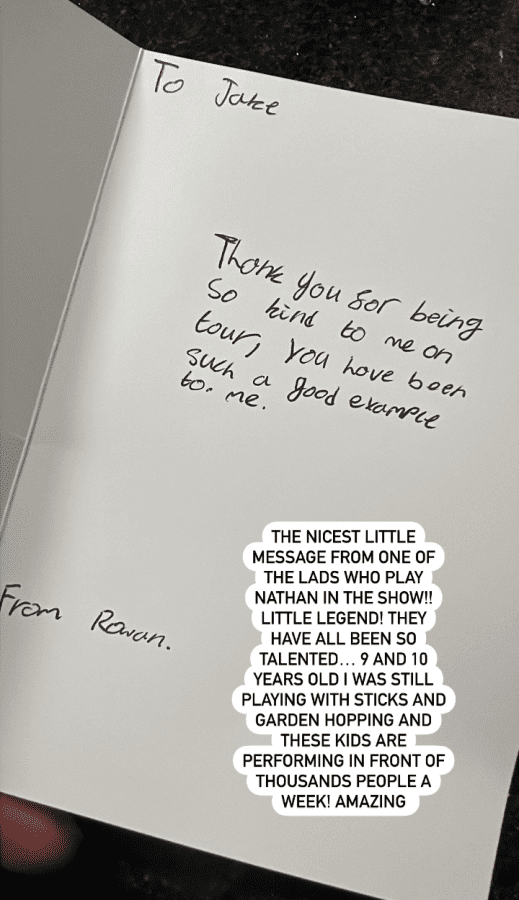 To Jake
Thank you for being
so kind to me on
tour, You have been
such a good example
to. me.
From Rowan.
THE NICEST LITTLE
MESSAGE FROM ONE OF
THE LADS WHO PLAY
NATHAN IN THE SHOW!!
LITTLE LEGEND! THEY
HAVE ALL BEEN SO
TALENTED... 9 AND 10
YEARS OLD I WAS STILL
PLAYING WITH STICKS AND
GARDEN HOPPING AND
THESE KIDS ARE
PERFORMING IN FRONT OF
THOUSANDS PEOPLE A
WEEK! AMAZING